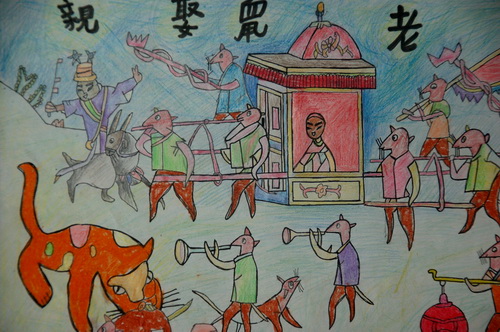 老鼠娶親